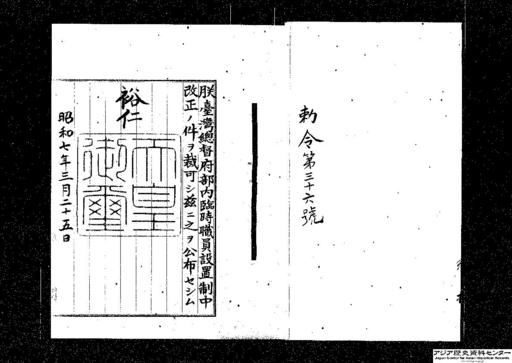 勅令第三十六號
朕臺灣總督府部內臨時職員設置制中
改正ノ件ヲ裁可シ茲ニ之ヲ公布セシム
裕仁
天皇
御璽
昭和七年三月二十五日
アジア歴史資料センター
Japan Center for Asian Historical Records